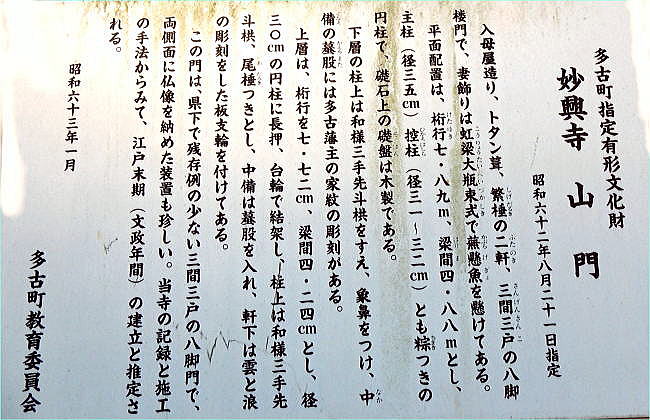 多古町指定有形文化財
妙興寺 山門
昭和六十二年八月二十一日指定
入母屋造り、トタン葺、繁棰の二軒、三間三戸の八脚
楼門で、妻飾りは虹梁大瓶束式で蕪懸魚を懸けてある。
平面配置は、桁行七・八九m、梁間四・八八mとし、
主柱（径三五cm）控柱（径三一〜三二cm）とも粽つきの
円柱で、礎石上の礎盤は木製である。
下層の柱上は和様三手先斗栱をすえ、象鼻をつけ、中
備の蟇股には多古藩主の家紋の彫刻がある。
上層は、桁行を七・七二m、梁間四・二四mとし、径
三〇cmの円柱に長押、台輪で結架し、柱上は和様三手先
斗栱、尾棰つきとし、中備は蟇股を入れ、軒下は雲と浪
の彫刻をした板支輪を付けてある。
この門は、県下で残存例の少ない三間三戸の八脚門で、
両側面に仏像を納めた装置も珍しい。当寺の記録と施工
の手法からみて、江戸末期（文政年間）の建立と推定さ
れる。
昭和六十三年一月
多古町教育委員会